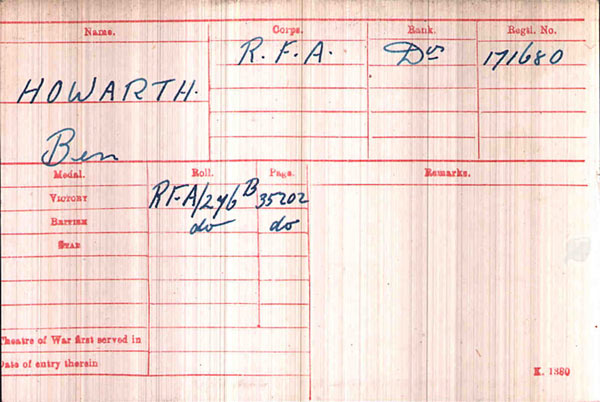 Name.
Corps.
Rank.
Regtl. No.
HOWARTH.
R.F.A.
Dvr
171680
Ben
Medal.
Roll.
Page.
Remarks.
VICTORY
RFA/246B
35202
BRITISH
do
do
STAR
Theatre of War first served in
Date of entry therein
K. 1380